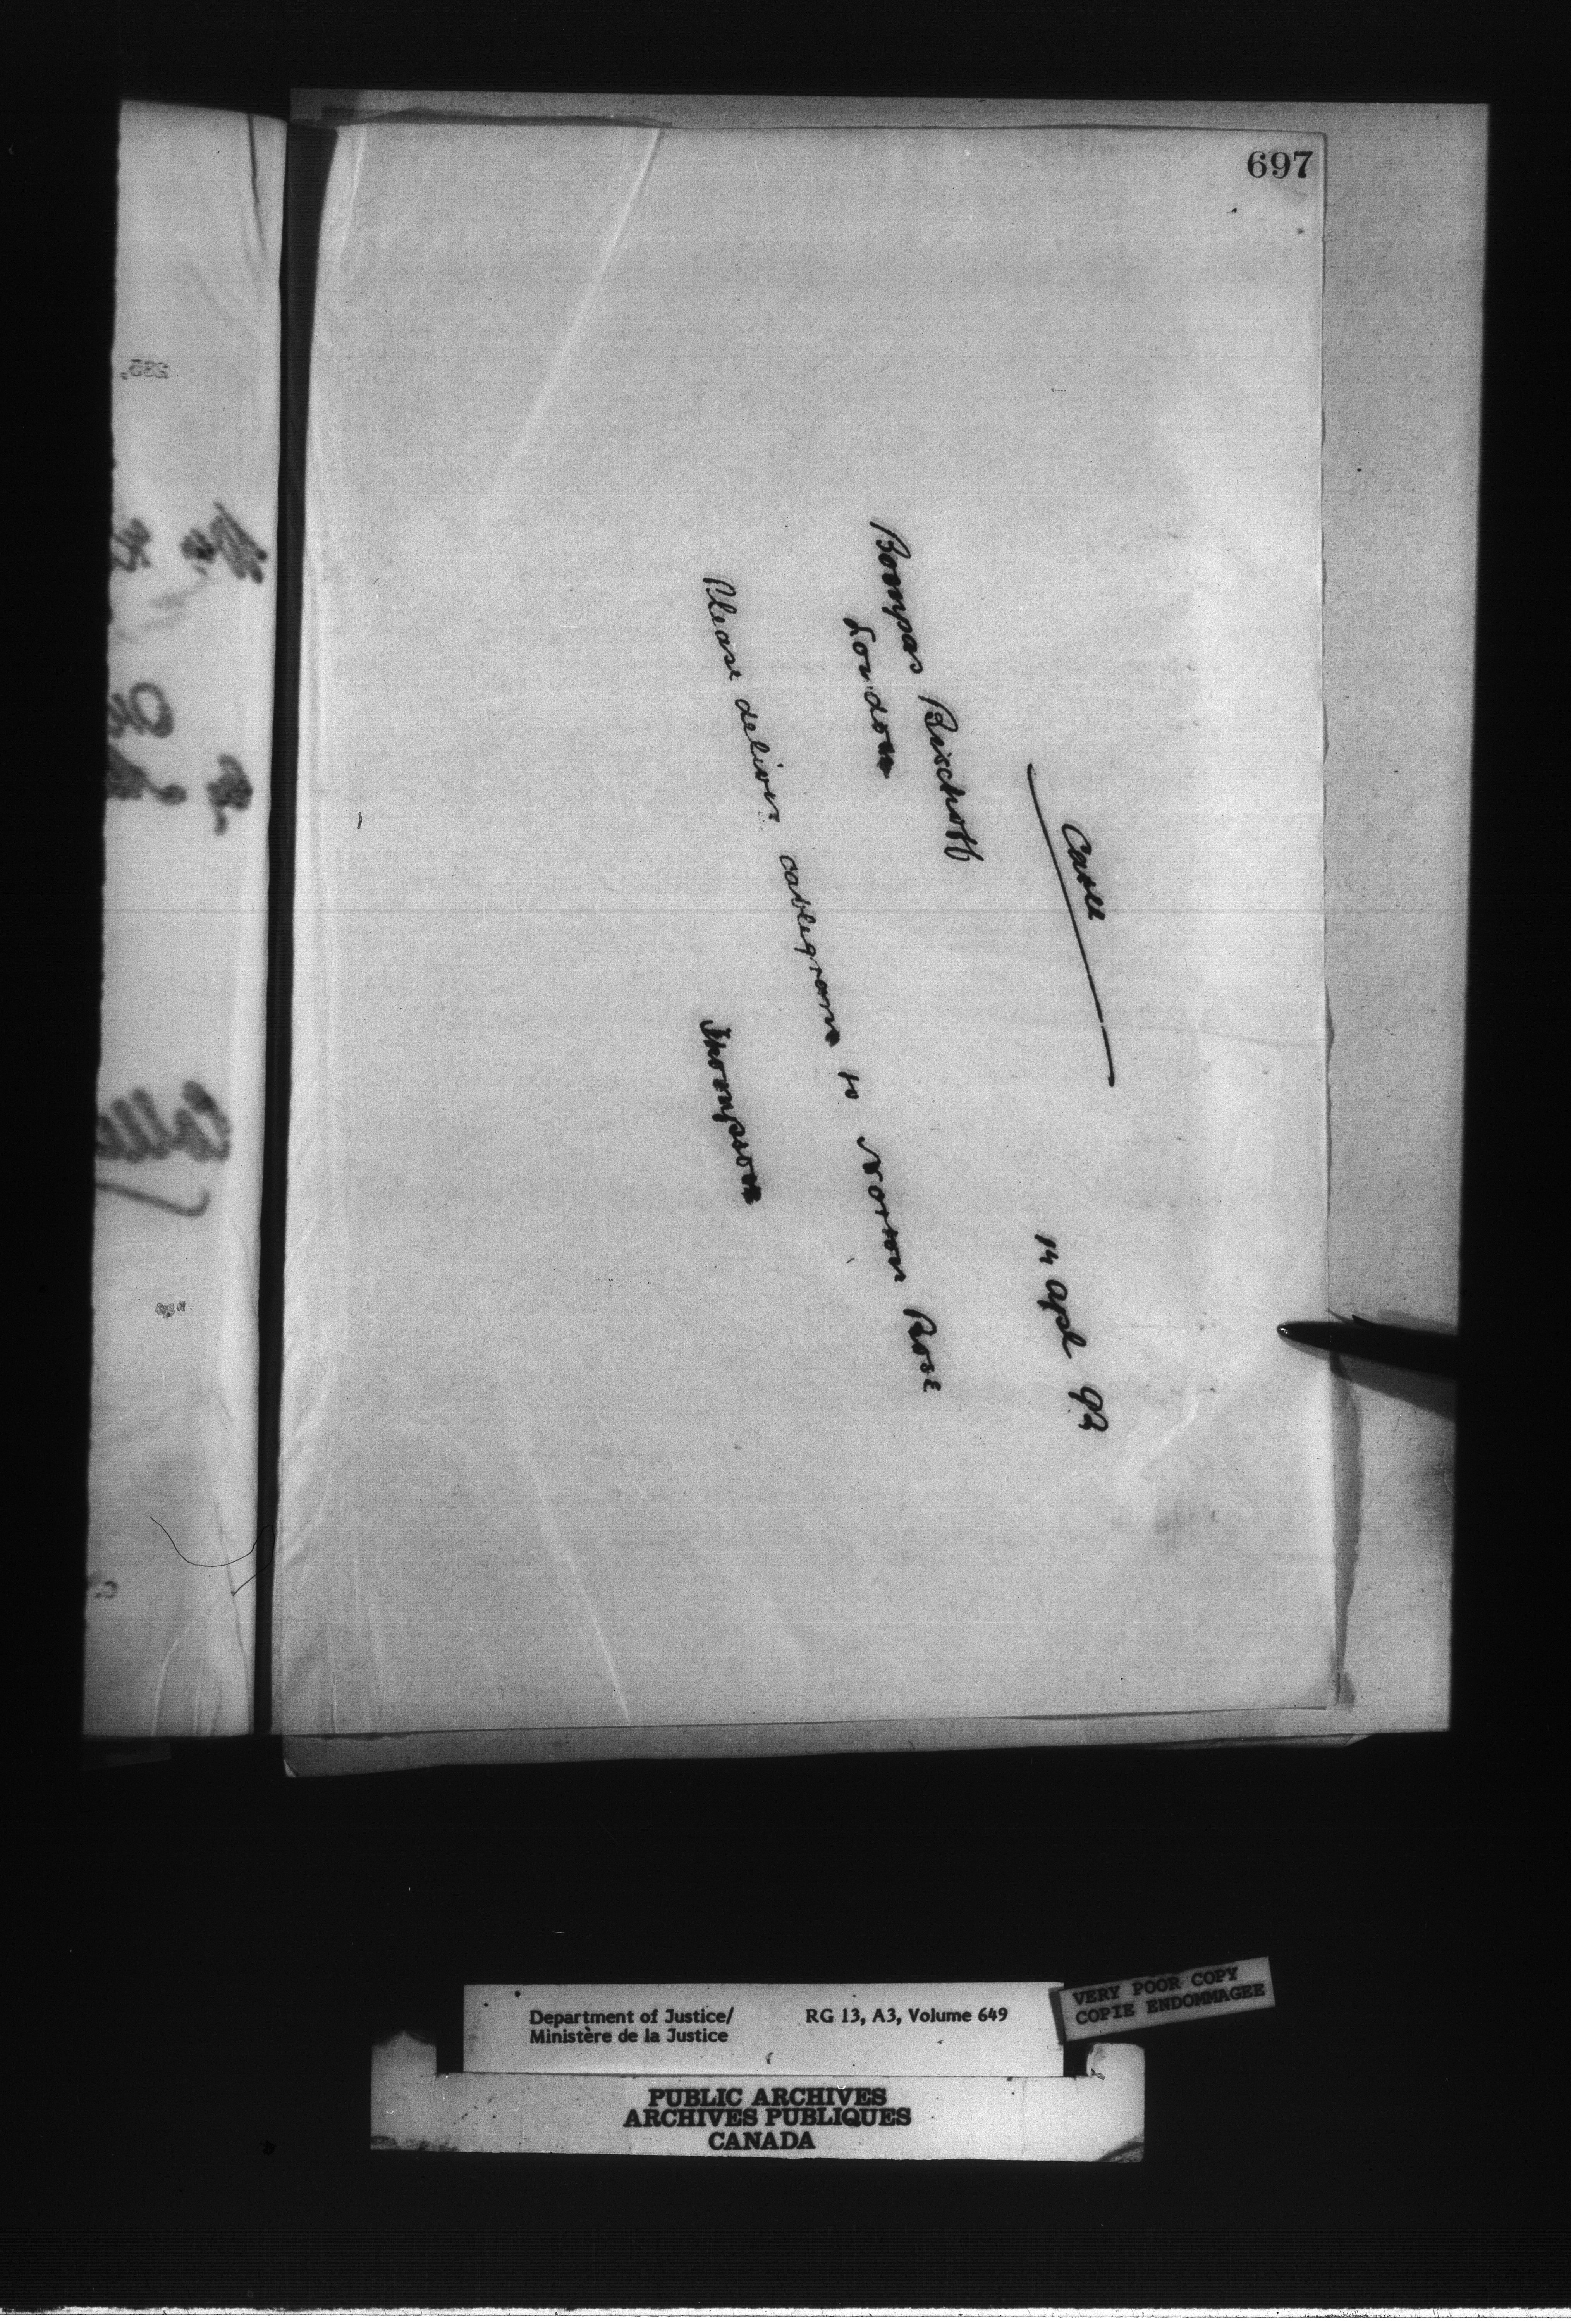 697
Cable
14 Apl 92
Bompas Bischoff
London
Please deliver cablegram to Norton Rose
Thompson
Department of Justice/
Ministère de la Justice
RG 13, A3, Volume 649
VERY POOR COPY
COPIE ENDOMMAGEE
PUBLIC ARCHIVES
ARCHIVES PUBLIQUES
CANADA